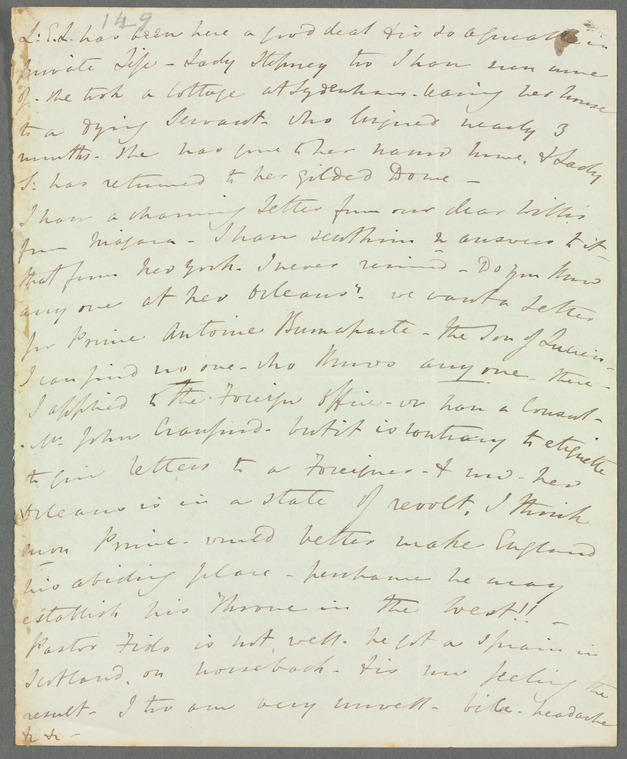 149
L: E. L. has been here a good deal & is so agreeable in
private Life - Lady Stepney too I have seen some
of. She took a Cottage at Sydenham. leaving her house
to a dying Servant. who lingered nearly 3
months. She has gone to her narrow home. & Lady
S: has returned to her gilded Dome -
I have a charming Letter from our dear Willis
from Niagara - I have scarcely in answer to it -
that from New York. I never received - Do you know
any one at New Orleans? - we want a Letter
for Prince Antoine Buonaparte - the Son of Lucien -
I can find no one - who knows any one there -
I applied to the Foreign Office - we have a Consul -
Mr John Craufurd. but it is contrary to etiquette
to give letters to a Foreigner - & now - New
Orleans is in a state of revolt. I think
mon Prince - would better make England
his abiding place - perchance he may
establish his Throne in the West!! -
Pastor Fido is not well. he got a Sprain in
Scotland. on horseback - & is now feeling the
result - I too am very unwell - bile - headache
&c &c -